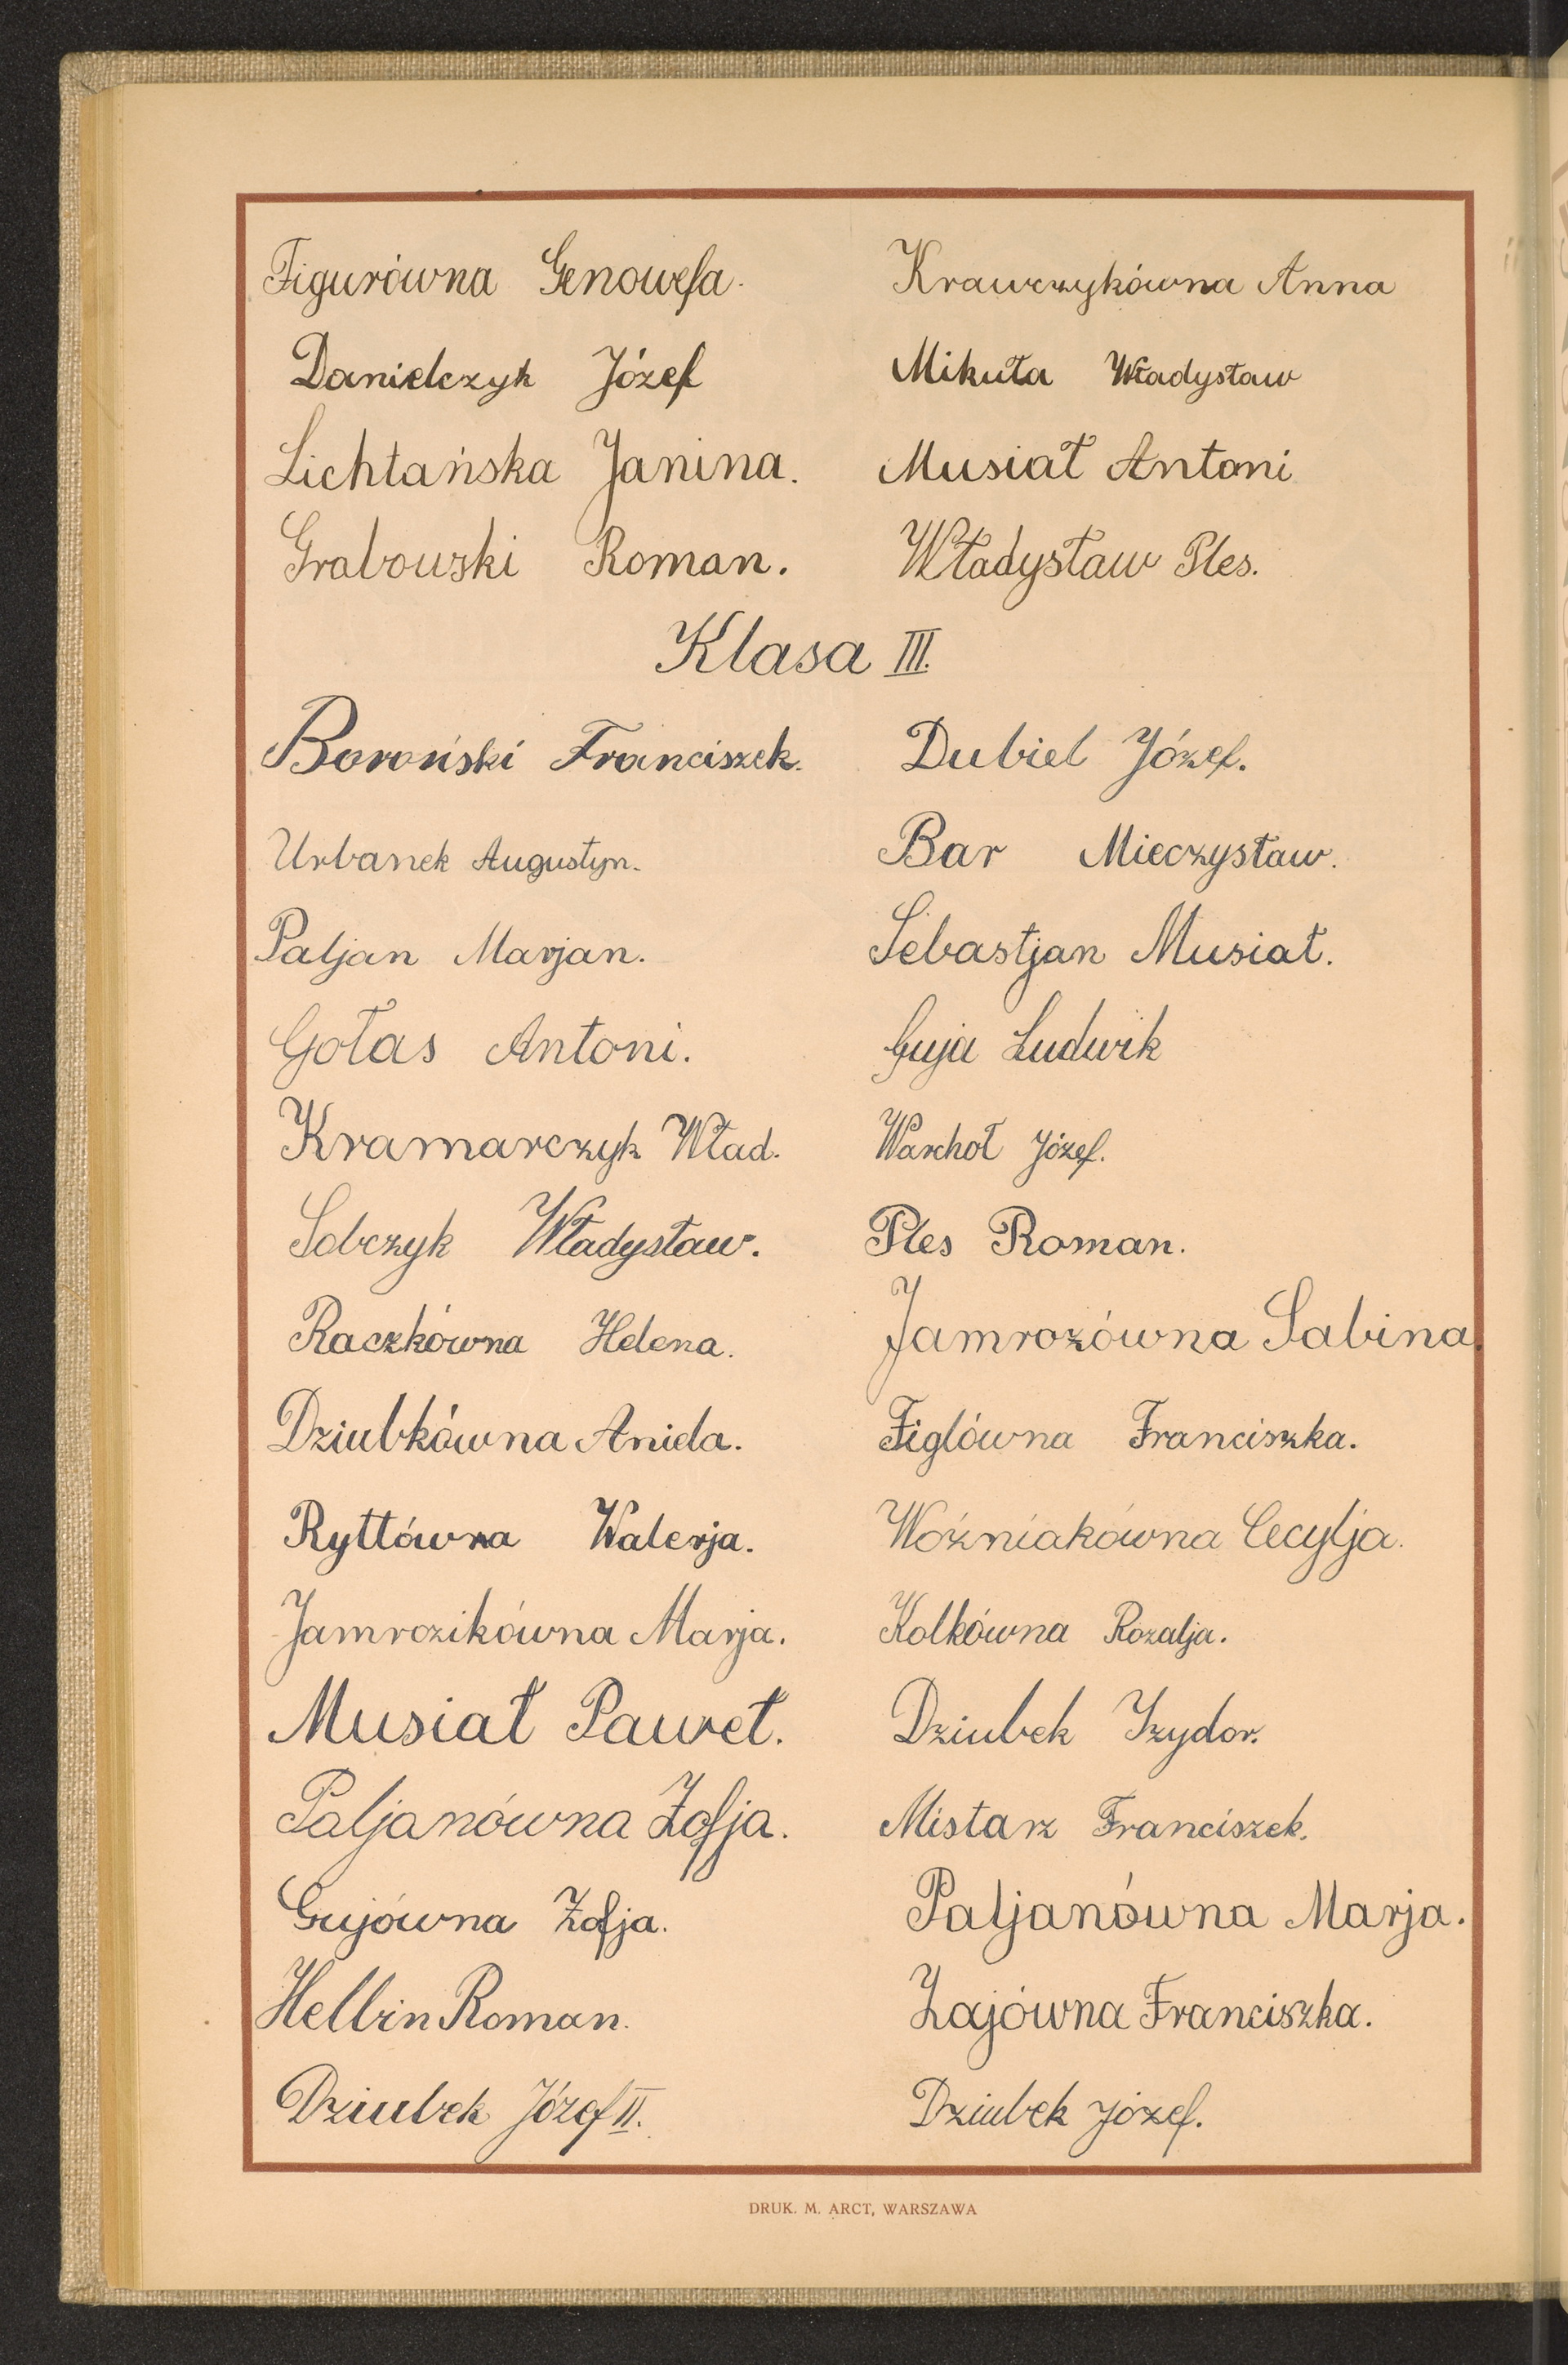 Figurówna Genowefa.
Krawczykówna Anna
Danielczyk Józef
Mikuła Władysław
Lichtańska Janina.
Musiał Antoni
Grabowski Roman.
Władysław Ples.
Klasa III.
Boroński Franciszek.
Dubiel Józef.
Urbanek Augustyn.
Bar Mieczysław.
Paljan Marjan.
Sebastjan Musiał.
Gołas Antoni.
Guja Ludwik
Kramarczyk Wład.
Warchoł Józef.
Sobczyk Władysław.
Ples Roman.
Raczkówna Helena.
Jamrozówna Sabina.
Dziubkówna Aniela.
Figlówna Franciszka.
Ryttówna Walerja.
Woźniakówna Cecylja.
Jamrozikówna Marja.
Kolkówna Rozalja.
Musiał Paweł.
Dziubek Izydor.
Paljanówna Zofja.
Mistarz Franciszek.
Gujówna Zofja.
Paljanówna Marja.
Hellin Roman.
Zajówna Franciszka.
Dziubek Józef II.
Dziubek Józef.
DRUK. M. ARCT, WARSZAWA